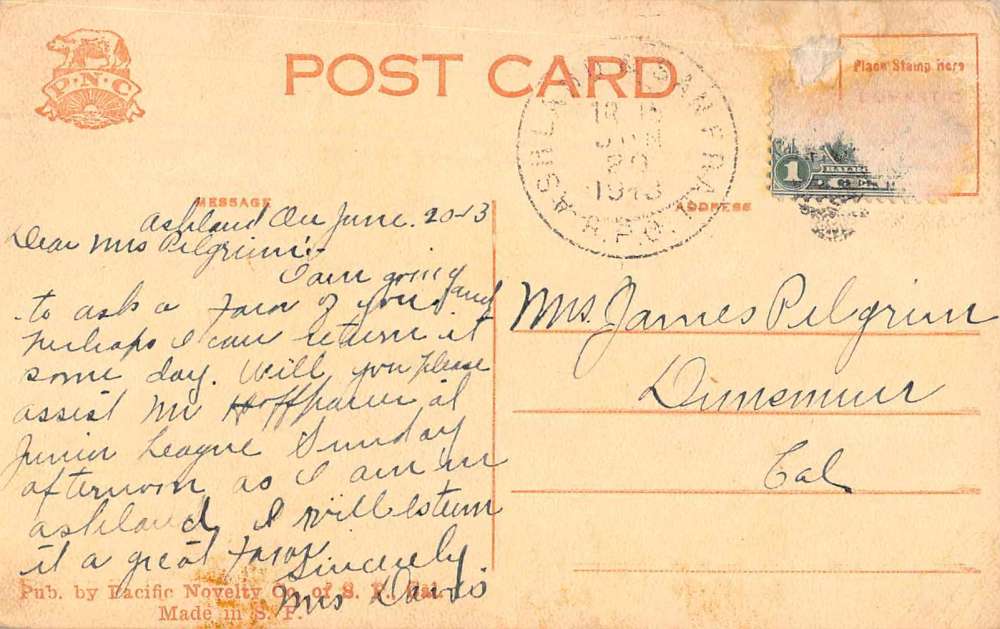 P·N·C
POST CARD
Place Stamp here
ASHLAND & SAN FRAN
TR 15
JUN
20
1913
R.P.O.
1
MESSAGE
ADDRESS
Ashland Ore June. 20-13
Dear Mrs Pilgrim:-
I am going
to ask a favor of you, and
perhaps I can return it
some day. Will you please
assist Mr at
Junior League Sunday
afternoon as I am in
ashland, I will esteem
it a great favor
Sincerely
Mrs Davis
Mrs. James Pilgrim
Dunsmuir
Cal,
Pub. by Pacific Novelty Co. of S. F., Cal.
Made in S. F.